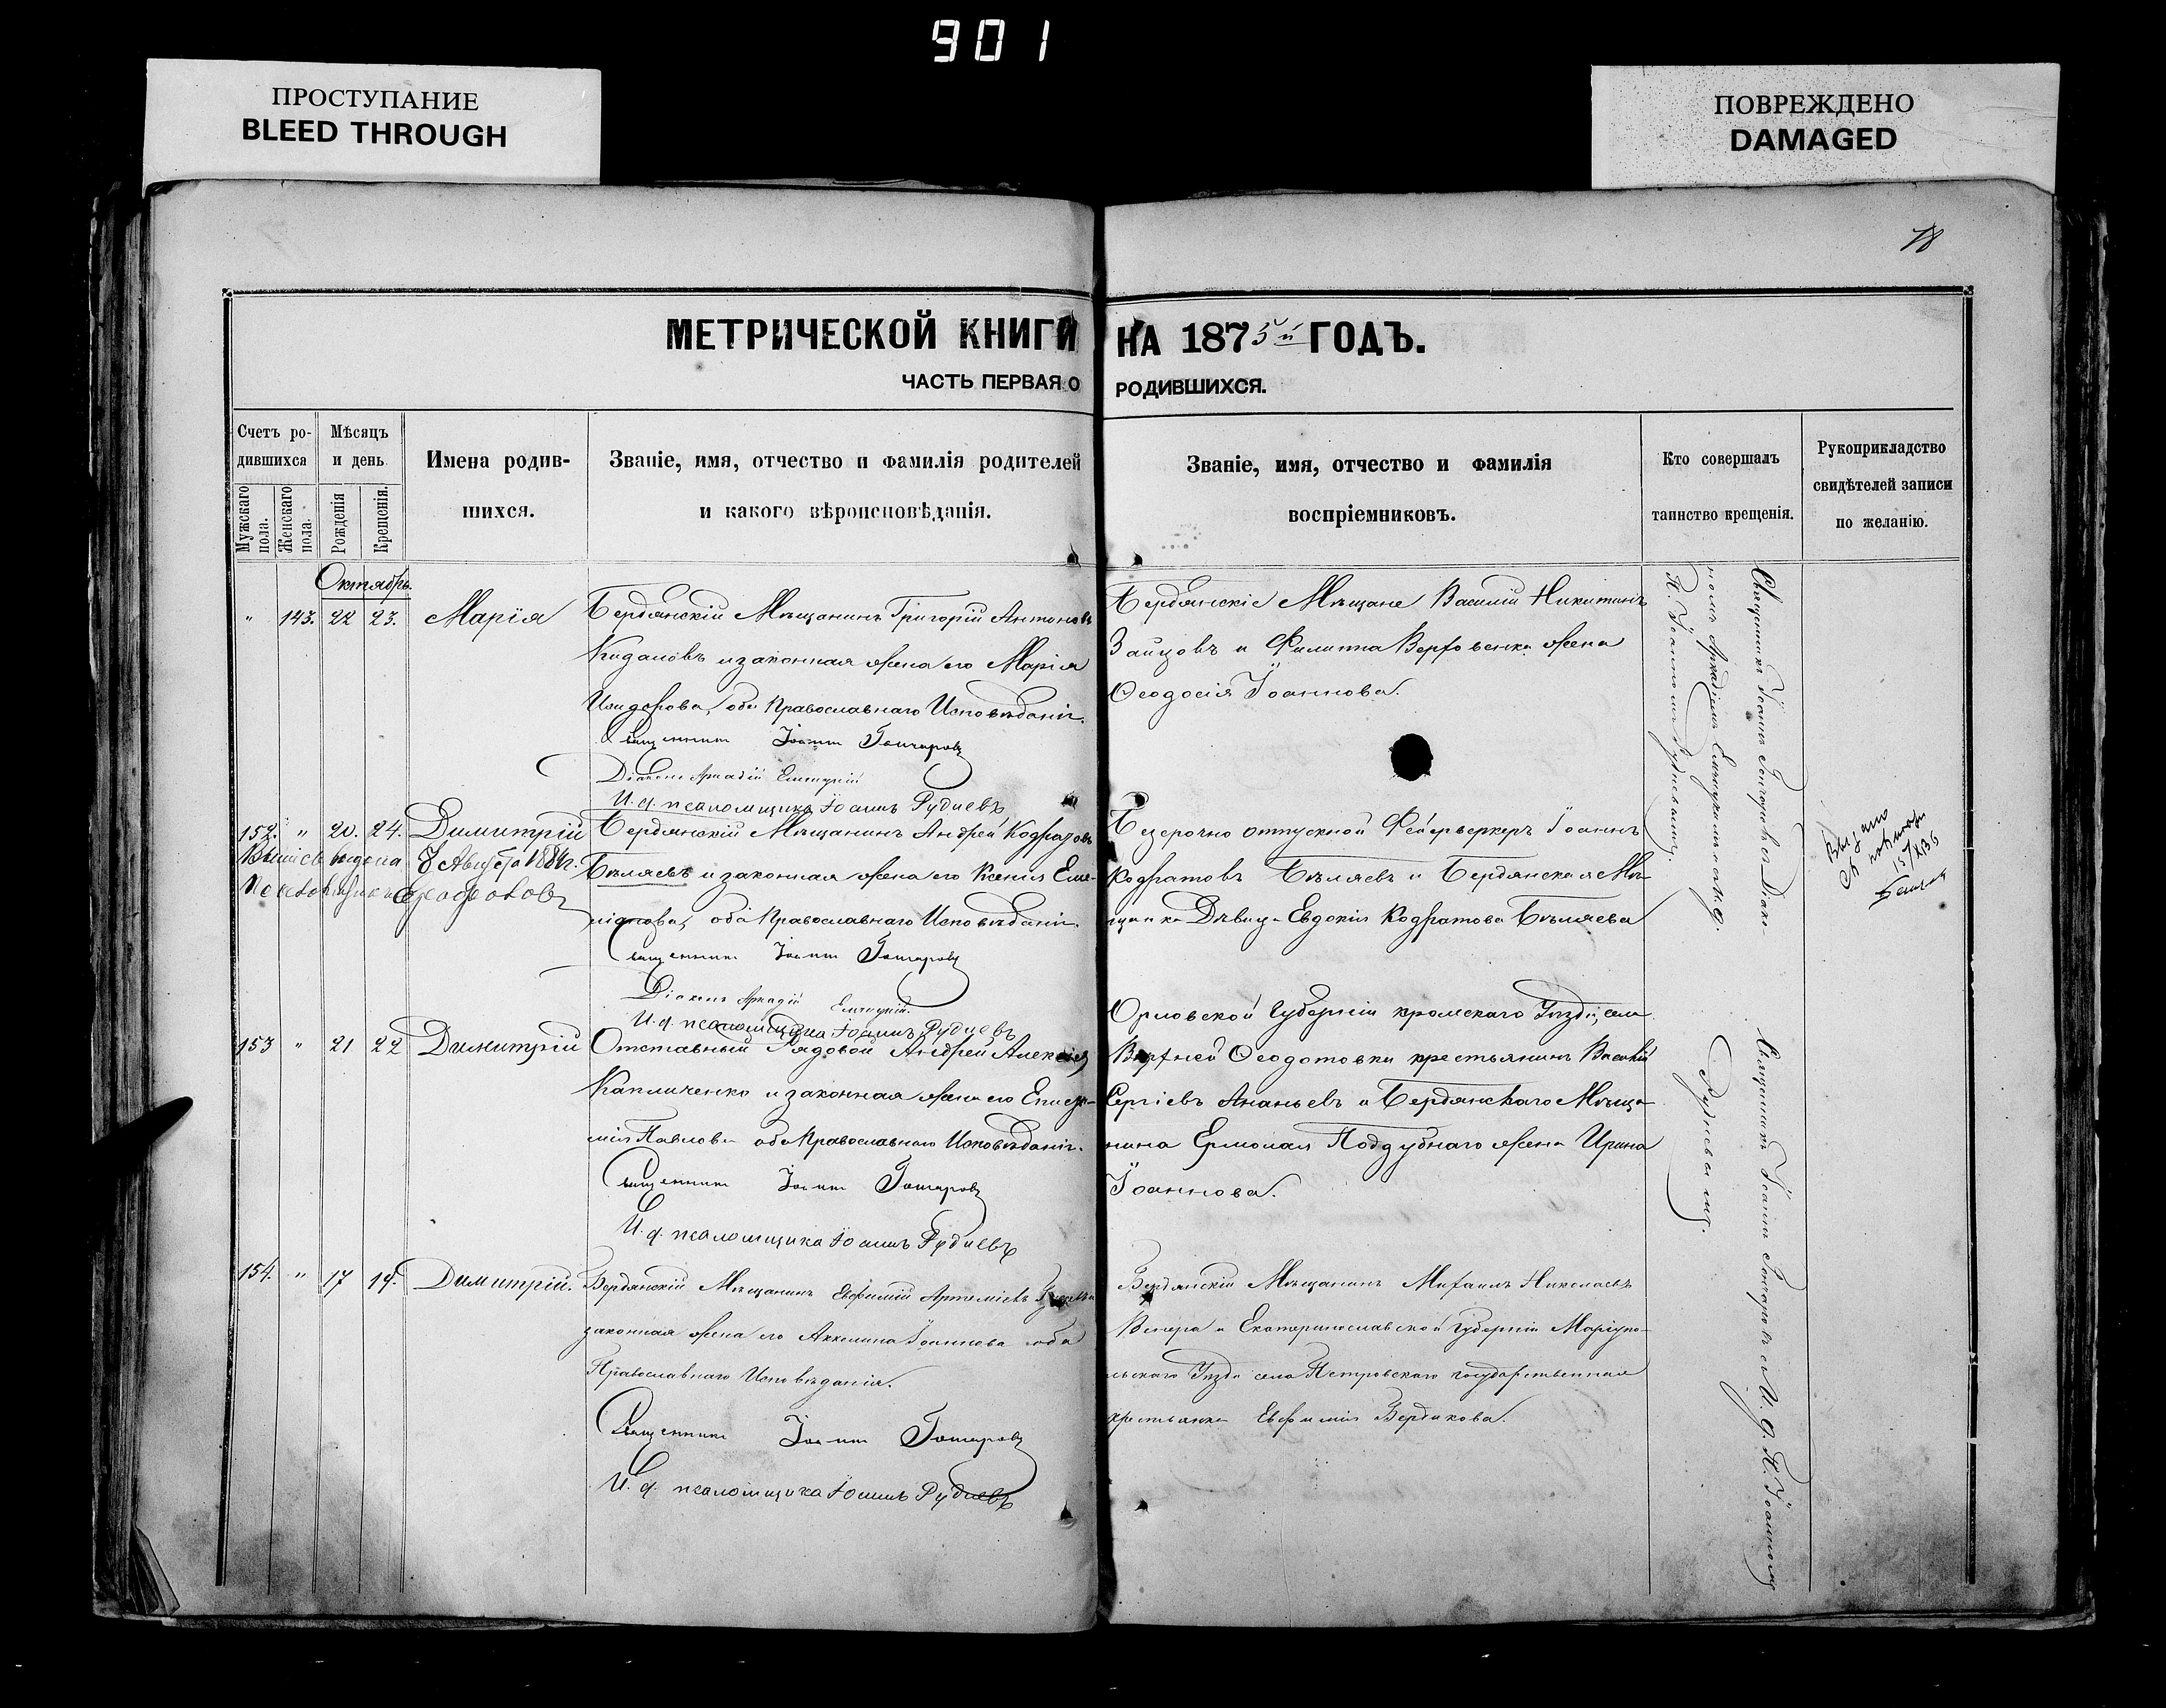 901
ПРОСТУПАНИЕ
BLEED THROUGH
ПОВРЕЖДЕНО
DAMAGED
78
МЕТРИЧЕСКОЙ КНИГИ НА 1875й ГОДЪ.
ЧАСТЬ ПЕРВАЯ О РОДИВШИХСЯ.
Счетъ ро-
дившихся
Мужскаго пола.
Женскаго пола.
Мѣсяцъ
и день
Рожденія
Крещенія.
Имена родив-
шихся.
Званіе, имя, отчество и фамилія родителей
и какого вѣроисповѣданія.
Званіе, имя, отчество и фамилія
воспріемниковъ.
Кто совершалъ
таинство крещенія.
Рукоприкладство
свидѣтелей записи
по желанію.
Октябрь.
" 143. 22 23. Марія
Бердянскій Мѣщанинъ Григорій Антоновъ
и законная жена его Марія
Исидорова, оба Православнаго Исповѣданія.
Священникъ Іоаннъ Гончаровъ
Діаконъ Аркадій
И. д. псаломщика Іоаннъ Рудневъ
Бердянскіе Мѣщане Василій Никитинъ
Зайцовъ и Филиппа жена
Ѳеодосія Іоаннова.
152. " 20. 24. Димитрій
8 Августа
Бердянскій Мѣщанинъ Андрей Кодратовъ
Бѣляевъ и законная жена его Ксенія Еме-
ліянова, оба Православнаго Исповѣданія.
Священникъ Іоаннъ Гончаровъ
Діаконъ Аркадій
И. д. псаломщика Іоаннъ Рудневъ
Безсрочно отпускной Фейерверкеръ Іоаннъ
Кодратовъ Бѣляевъ и Бердянская Мѣ-
щанка Дѣвица Евдокія Кодратова Бѣляева
Выдано
153 " 21 22 Димитрій
Отставный Рядовой Андрей Алексѣевъ
Капличенко и законная жена его Епис-
мія Павлова оба Православнаго Исповѣданія.
Священникъ Іоаннъ Гончаровъ
И. д. псаломщика Іоаннъ Рудневъ
Орловской Губерніи кромскаго Уѣзда, села
Верхней Ѳеодотовки крестьянинъ Василій
Сергіевъ Ананьевъ и Бердянскаго Мѣща-
нина Ермолая Поддубнаго жена Ирина
Іоаннова.
154. " 17 19. Димитрій.
Бердянскій Мѣщанинъ Евфимій Артеміевъ
законная жена его Аккилина Іоаннова оба
Православнаго Исповѣданія.
Священникъ Іоаннъ Гончаровъ
И. д. псаломщика Іоаннъ Рудневъ
Бердянскій Мѣщанинъ Михаилъ Николаевъ
и Екатеринославской Губерніи Маріупо-
льскаго Уѣзда села Петровскаго государственная
крестьянка Евфимія Бердикова.
Священникъ Іоаннъ Гончаровъ съ Діако-
номъ Аркадіемъ и И. д.
П. Іоанномъ Рудневымъ.
Священникъ Іоаннъ Гончаровъ съ И. д. П. Іоанномъ
Рудневымъ.